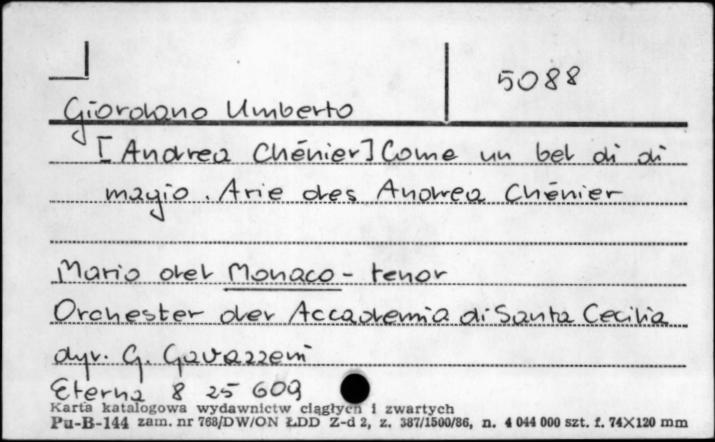 5088
Giordano Umberto
[Andrea Chénier] Come un bel di di
magio. Arie des Andrea Chénier
Mario del Monaco - tenor
Orchester der Accademia di Santa Cecilia
dyr. G. Gavazzeni
Eterna 8 25 609
Karta katalogowa wydawnictw ciągłych i zwartych
Pu-B-144 zam. nr 768/DW/ON ŁDD Z-d 2, z. 387/1500/86, n. 4 044 000 szt. f. 74X120 mm